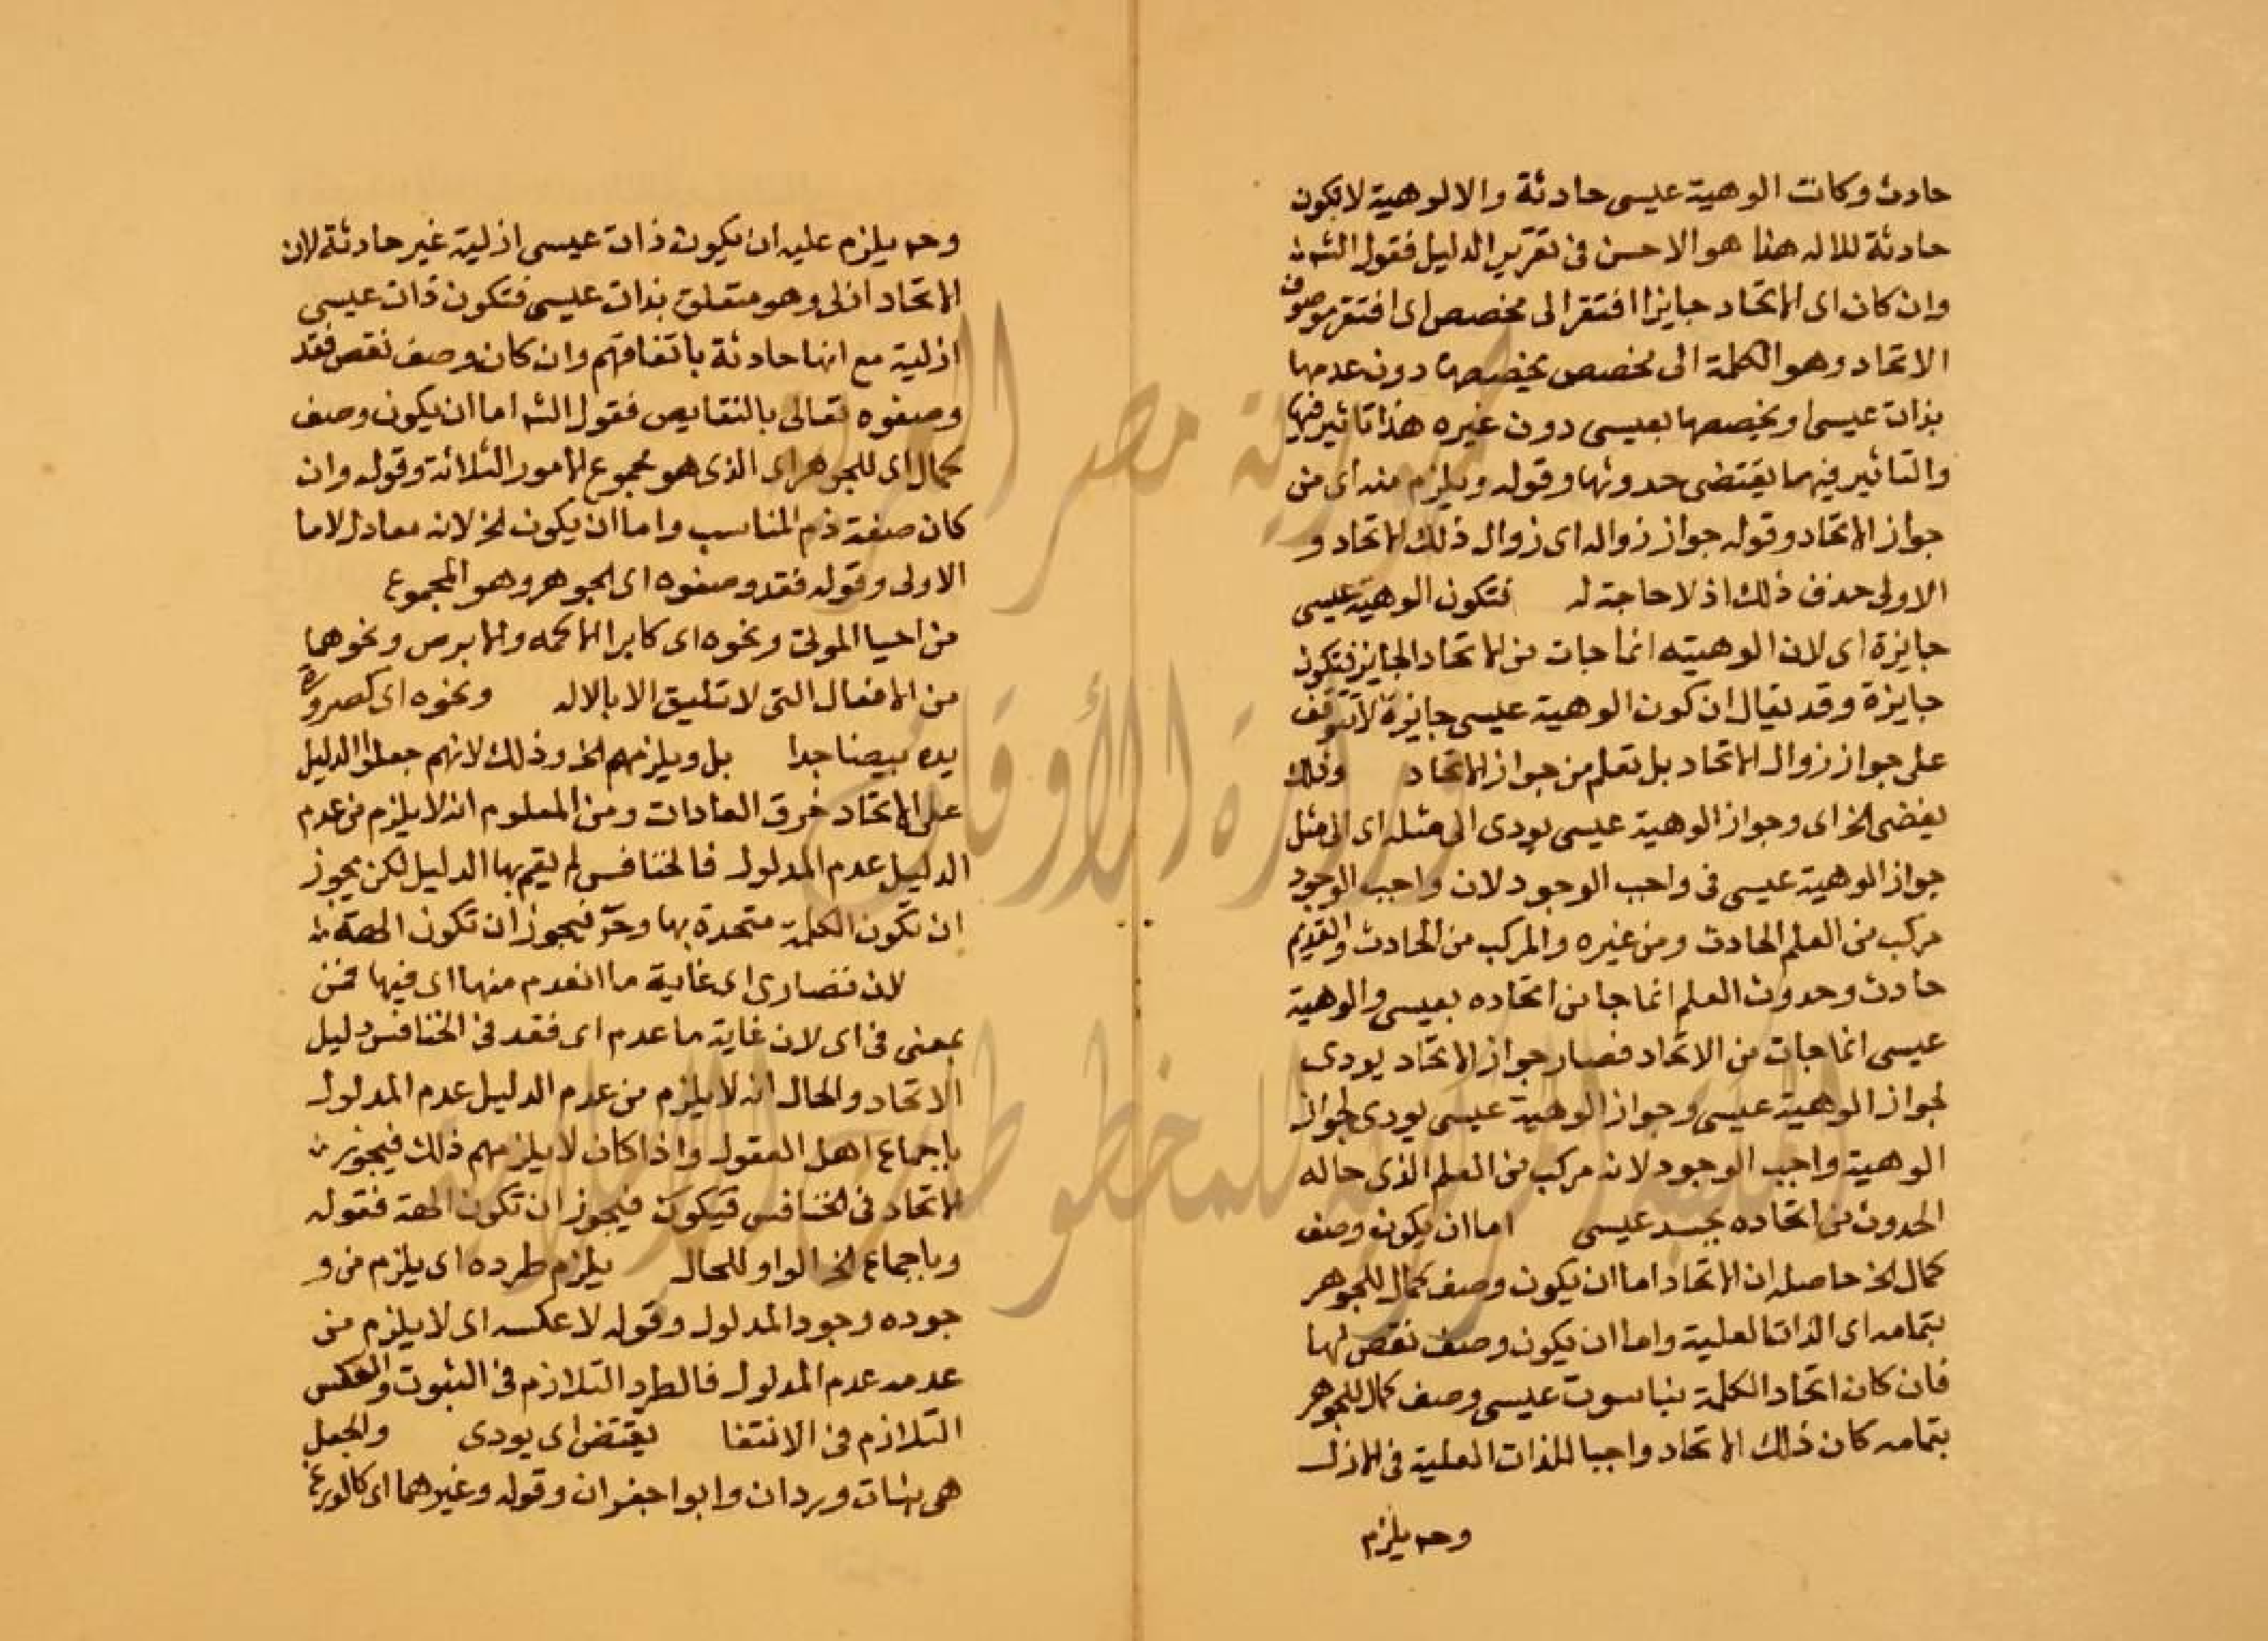 حادث وكانت الوهية عيسى حادثة والالوهية لا تكون
حادثة للاله هذا هو الاحسن فى تقرير الدليل فقول الشـ
وان كان اى الاتحاد جايزا افتقر الى مخصص اى افتقر موصوف
الاتحاد وهو الكلمة الى مخصص يخصصها دون عدمها
بذات عيسى او يخصصها بعيسى دون غيره هذا تاثير فيها
والتاثير فيها يقتضى حدوثها وقوله ويلزم منه اى من
جواز الاتحاد وقوله جواز زواله اى زوال ذلك الاتحاد و
الاولى حذف ذلك اذ لا حاجة له فتكون الوهية عيسى
جايزة اى لان الوهيته انما جات من الاتحاد الجايز فتكون
جايزة وقد يقال ان كون الوهية عيسى جايزة لا تتوقف
على جواز زوال الاتحاد بل تعلم من جواز الاتحاد وذلك
يفضى الخ اى وجواز الوهية عيسى يودى الى مثله اى الى مثل
جواز الوهية عيسى فى واجب الوجود لان واجب الوجود
مركب من العلم الحادث ومن غيره والمركب من الحادث والقديم
حادث وحدوث العلم انما جا من اتحاده بعيسى والوهية
عيسى انما جات من الاتحاد فصار جواز الاتحاد يودى
لجواز الوهية عيسى وجواز الوهية عيسى يودى لجواز
الوهية واجب الوجود لانه مركب من العلم الذى حاله
الحدوث من اتحاده بجسد عيسى اما ان يكون وصف
كمال الخ حاصله ان الاتحاد اما ان يكون وصف كمال للجوهر
بتمامه اى الذات العلية واما ان يكون وصف نقص لها
فان كان اتحاد الكلمة بناسوت عيسى وصف كمال للجوهر
بتمامه كان ذلك الاتحاد واجبا للذات العلية فى الازل
وحـ يلزم
وحـ يلزم عليه ان يكون ذات عيسى ازلية غير حادثة لان
الاتحاد ازلى وهو متعلق بذات عيسى فتكون ذات عيسى
ازلية مع انها حادثة باتفاقهم وان كان وصف نقص فقد
وصفوه تعالى بالنقايص فقول الشـ اما ان يكون وصف
كمال اى للجوهر اى الذى هو مجموع الامور الثلاثة وقوله وان
كان صفة ذم المناسب واما ان يكون الخ لانه معادل لاما
الاولى وقوله فقد وصفوه اى الجوهر وهو المجموع
من احيا الموتى ونحوه اى كابرا الاكمه والابرص ونحوهما
من الافعال التى لا تليق الا بالاله ونحوه اى كصيرورة
يده بيضا جدا بل ويلزمهم الخ وذلك لانهم جعلوا الدليل
على الاتحاد خرق العادات ومن المعلوم انه لا يلزم من عدم
الدليل عدم المدلول فالخنافس لم يقم بها الدليل لكن يجوز
ان تكون الكلمة متحدة بها وحـ فيجوز ان تكون الهة
لان قصارى اى غاية ما انعدم منها اى فيها فمن
بمعنى فى اى لان غاية ما عدم اى فقد فى الخنافس دليل
الاتحاد والحال انه لا يلزم من عدم الدليل عدم المدلول
باجماع اهل العقول واذا كان لا يلزمهم ذلك فيجوز
الاتحاد فى الخنافس فيكون فيجوز ان تكون الهة فقوله
وباجماع الخ الواو للحال يلزم طرده اى يلزم من و
جوده وجود المدلول وقوله لا عكسه اى لا يلزم من
عدمه عدم المدلول فالطرد التلازم فى الثبوت والعكس
التلازم فى الانتفا يقتضى اى يودى والجعل
هى بنات وردان وابو اجعران وقوله وغيرهما اى كالوزغة
جمهورية مصر العربية
وزارة الأوقاف
المكتبة المركزية للمخطوطات الإسلامية